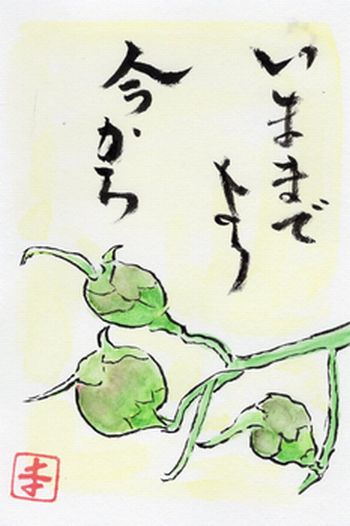 いままで
より
今から